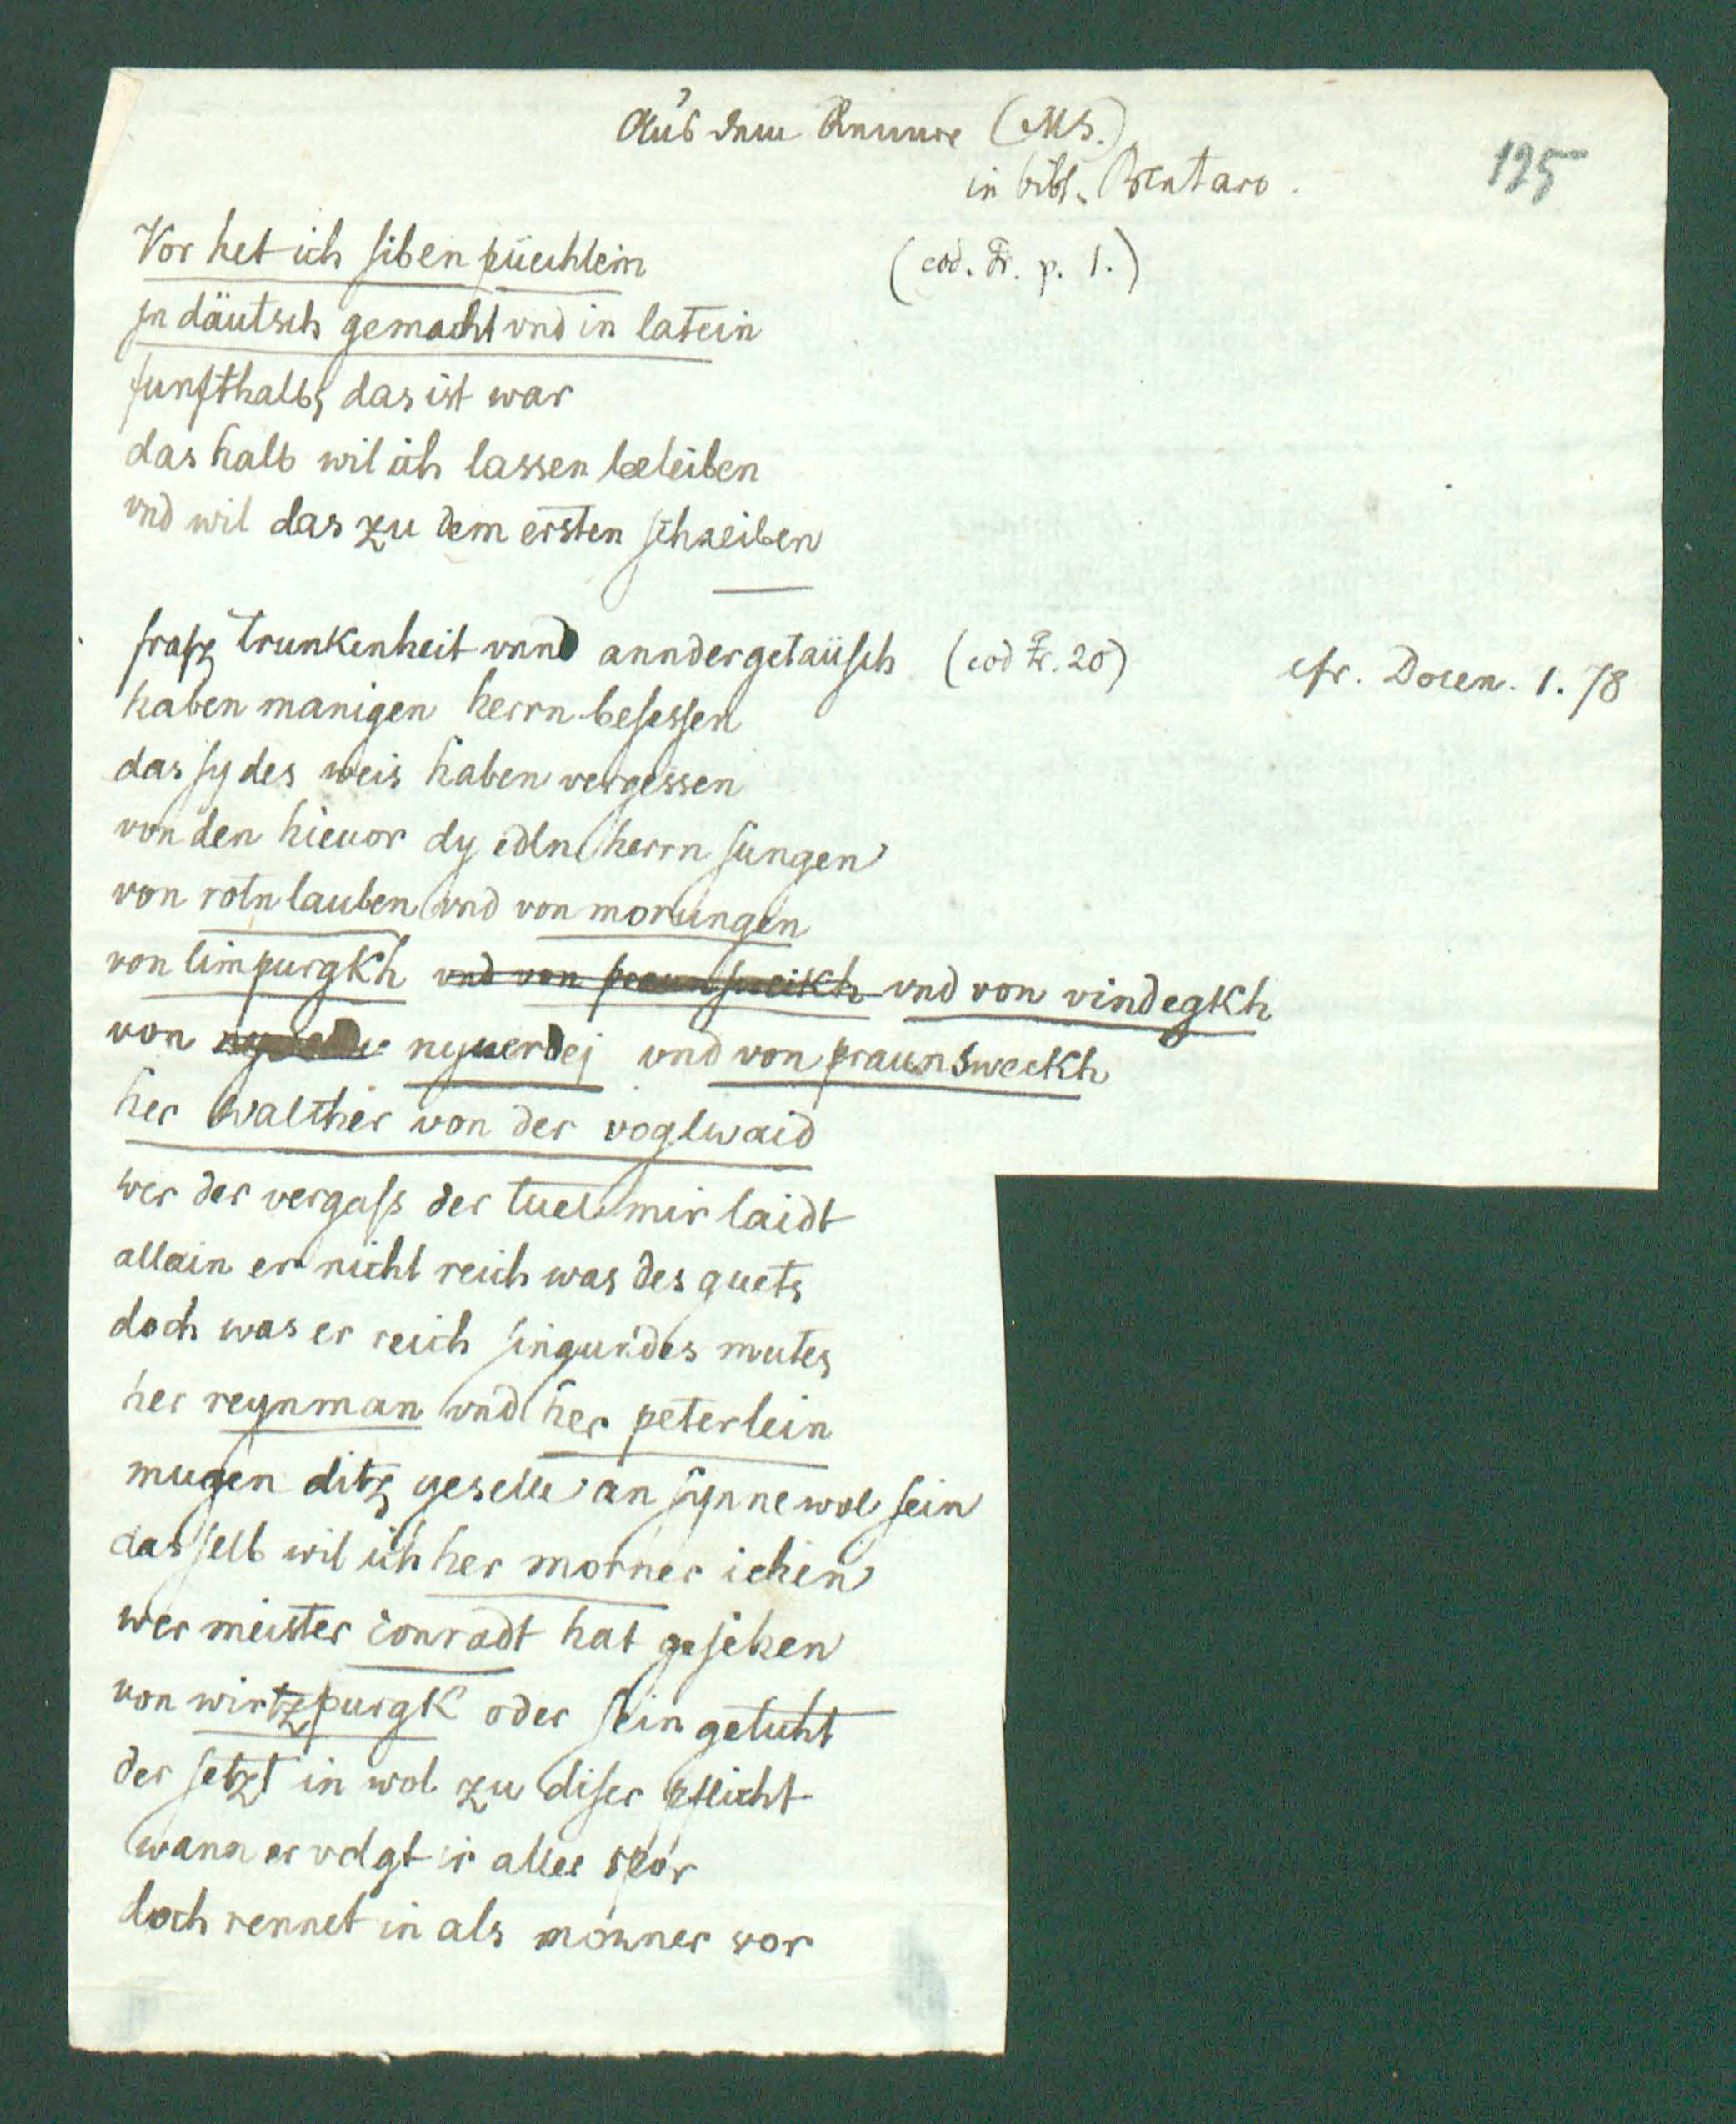 Aus dem Renner (MS.)
in bibl. Brentano.
125
Vor het ich siben püechlein (cod. Fr. p. 1.)
jn däutsch gemacht vnd in latein
funfthalbs das ist war
das halb wil ich lassen beleiben
vnd wil das zu dem ersten schreiben
frasz trunkenheit vnnd annder getäüsch (cod Fr. 20) cfr. Docen. 1. 78
haben manigen herrn besessen
das sy des weis haben vergessen
von den hieuor dy edln herrn sungen
von rotnlauben vnd von morungen
von limpurgkh vnd von praunsweikh vnd von vindegkh
von nyuerdej vnd von praunsweckh
her walther von der voglwaid
wer der vergass der tuet mir laidt
allain er nicht reich was des guets
doch was er reich singundes mutes
her reynman vnd her peterlein
mugen ditz geselle an synne wol sein
das selb wil ich her morner iehen
wer meister conradt hat gesehen
von wirtzpurgk oder sein geticht
der setzt in wol zu diser pflicht
wann er volgt ir aller spor
doch rennet in als morner vor